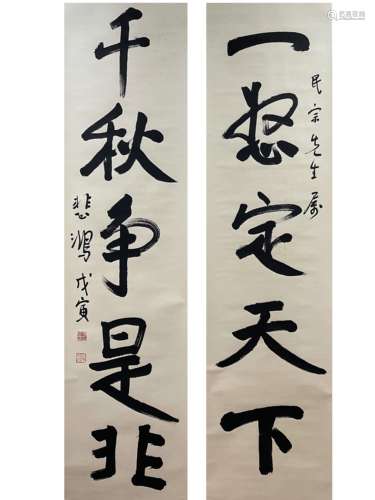 一怒定天下
民宗先生属
千秋争是非
悲鸿戊寅